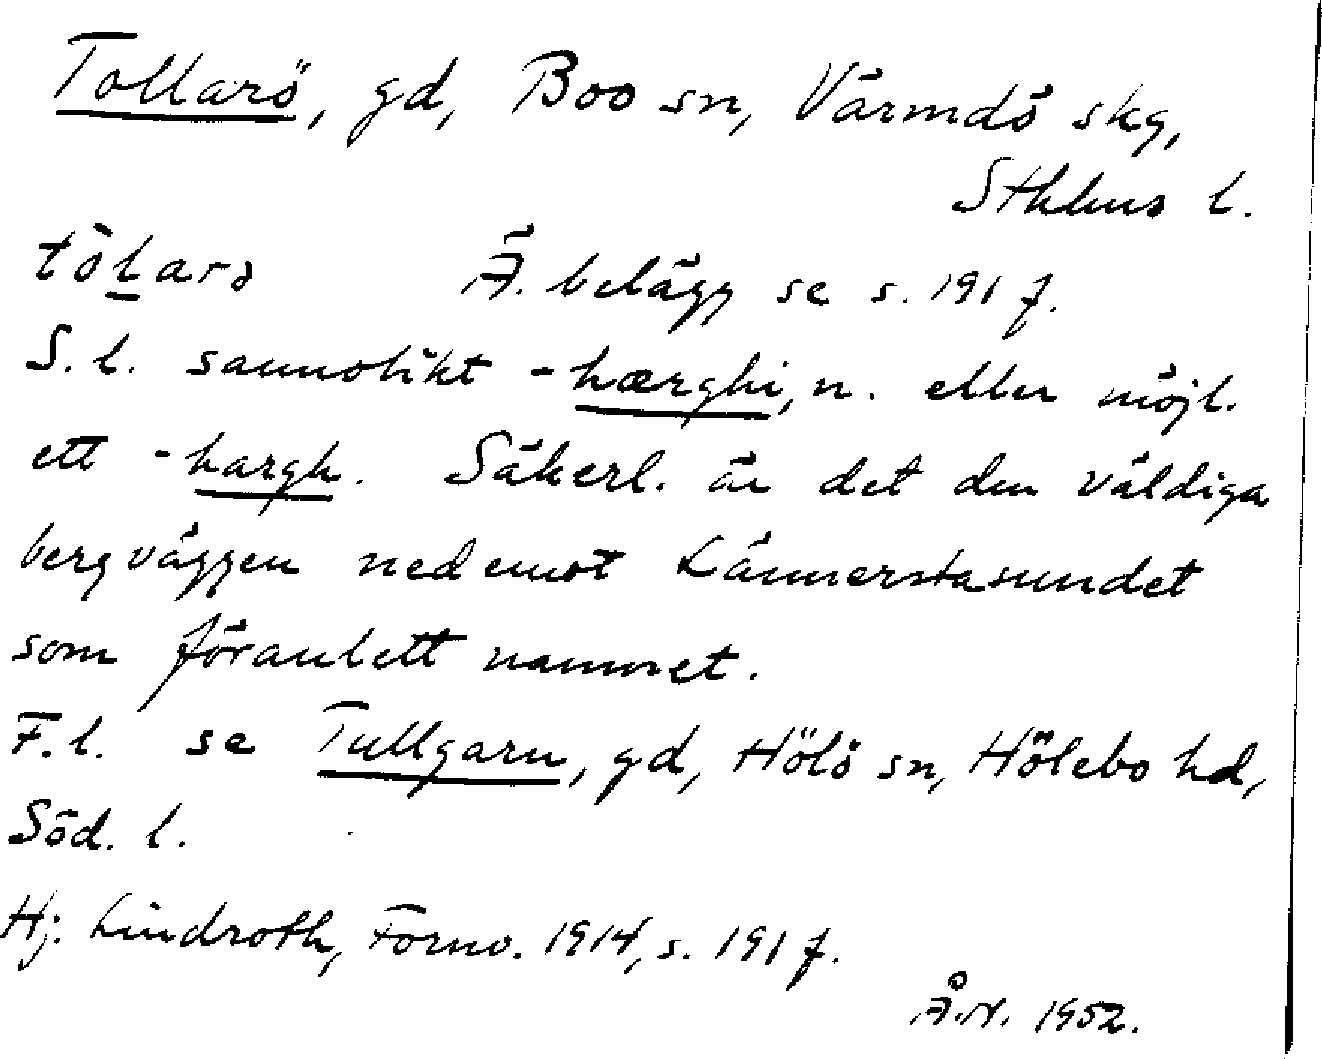 Tollarö, gd, Boo sn, Värmdö skg,
Sthlms l.
tòḷarə Ä. belägg se s. 191 f.
S. l. sannolikt -hærghi, n. eller möjl.
ett -hargh. Säkerl. är det den väldiga
bergväggen nedemot Lännerstasundet
som föranlett namnet.
F. l. se Tullgarn, gd, Hölö sn, Hölebo hd,
Söd. l.
Hj. Lindroth, Fornv. 1914, s. 191 f.
Å.N. 1952.